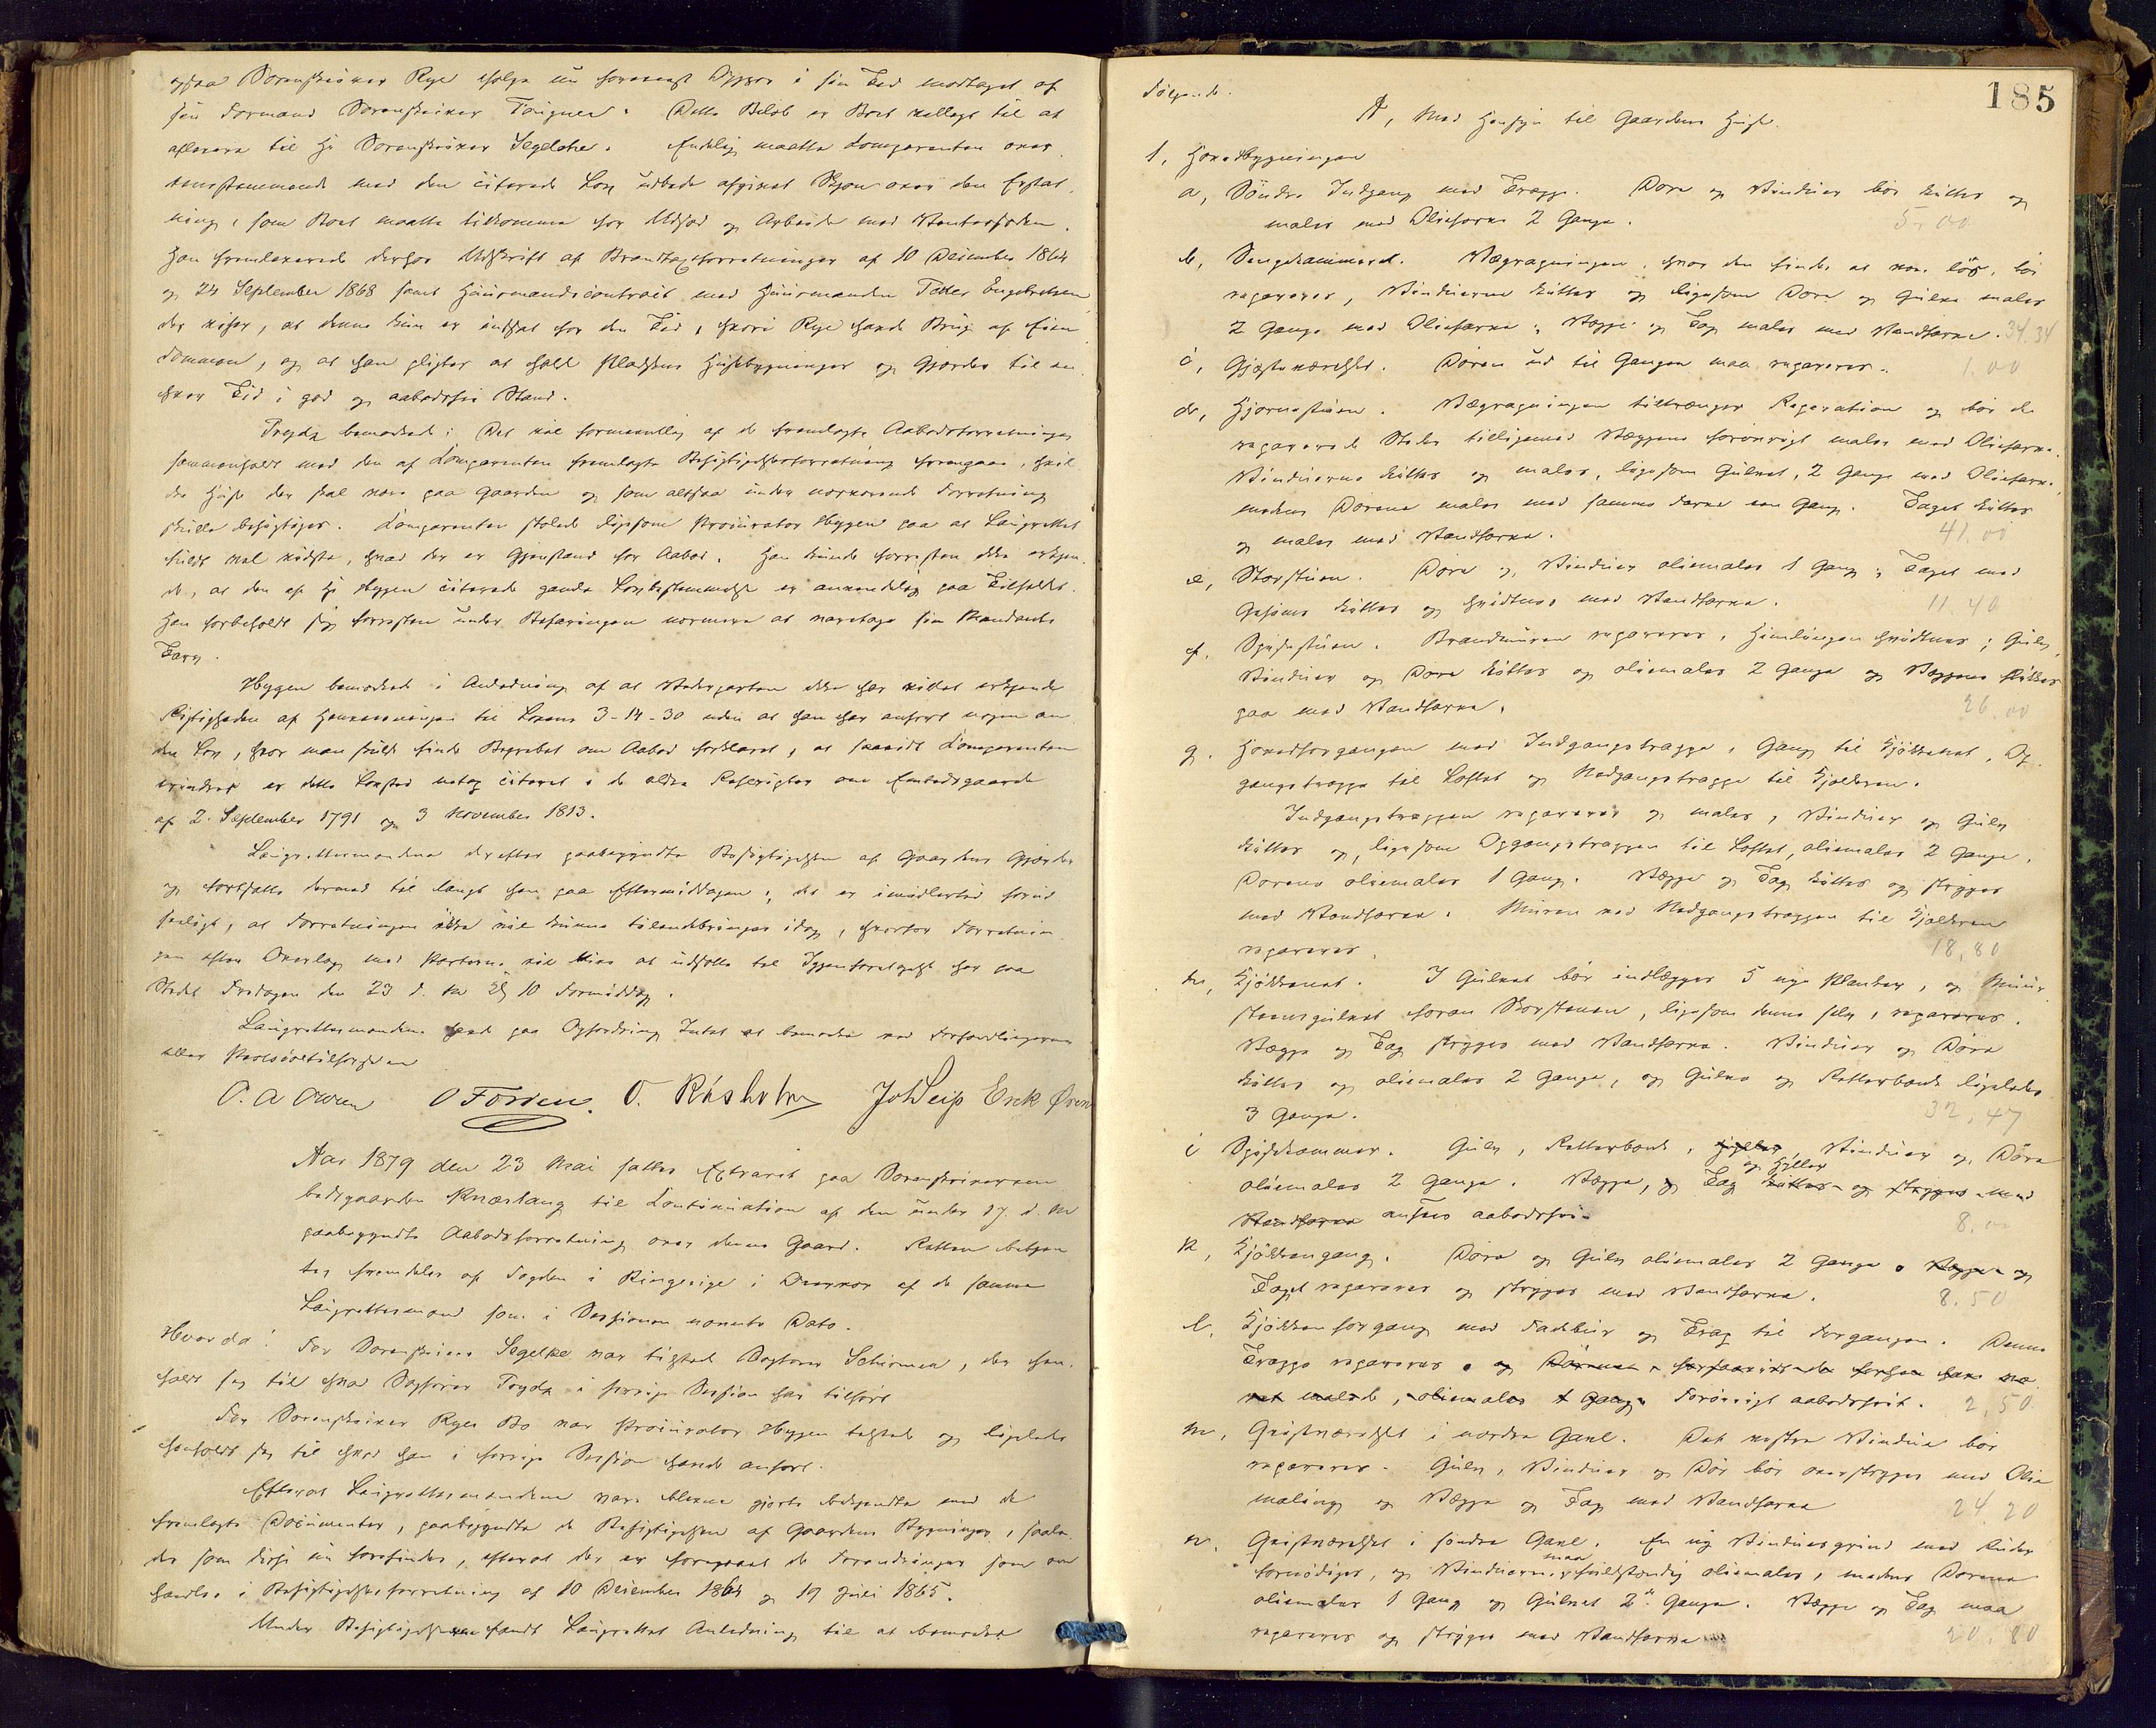 ogsaa Sorenskriver Rye ifølge nu foretagt Opgjør i sin Tid modtaget af
sin Formand Sorenskriver Faigner. Dette Beløb er Boet villigt til at
aflevere til Hr Sorenskriver Segelcke. Endelig maatte Comparenten over-
ensstemmende med den citerede Lov udbede afgivet Skjøn over den Erstat-
ning, som Boet maatte tilkomme for Udsæd og Arbeide med Vaarsæden.
Han fremleverede derhos Udskrift af Brandtaxtforretninger af 10 December 1864
og 24 September 1868 samt Huusmandscontract med Huusmanden Peder Engebretsen
der viser, at denne kun er indsat for den Tid, hvori Rye havde Brug af Eien-
dommen, og at han pligter at holde Pladsens Huusbygninger og Gjerder til en-
hver Tid i god og aabodsfri Stand.
Prydz bemærkede: Det vil formentlig af de fremlagte Aabodsforretninger
sammenholdt med den af Comparenten fremlagte Besigtigelsesforretning fremgaa, hvil-
ke Huse der skal være paa Gaarden og som altsaa under nærværende Forretning
skulle besigtiges. Comparenten holdt ligesom Procurator Hygen paa at Laugrettet
fuldt vel vidste, hvad der er Gjenstand for Aabod. Han kunde forresten ikke erkjen-
de, at den af Hr Hygen citerede gamle Lovbestemmelse er anvendelig paa Tilfældet.
Han forbeholdt sig forresten under Befaringen nærmere at varetage sin Mandants
Tarv.
Hygen bemærkede i Anledning af at Modparten ikke har villet erkjende
Rigtigheden af Henvisningen til Lovens 3-14-30 uden at han har anført nogen an-
den Lov, hvor man skulde finde Begrebet om Aabod forklaret, at saavidt Comparenten
erindrer er dette Lovsted netop citeret i de ældre Rescripter om Embedsgaarde
af 2. September 1791 og 3 November 1813.
Laugrettesmændene derefter paabegyndte Besigtigelsen af Gaardens Gjerder
og fortsatte dermed til langt hen paa Eftermiddagen; det er imidlertid forud-
seeligt, at Forretningen ikke vil kunne tilendebringes idag, hvorfor Forretnin-
gen efter Overlæg med Parterne vil blive at udsætte til Igjenforetagelse her paa
Stedet Fredagen den 23 d. M Kl 10 Formiddag.
Laugrettesmændene havde paa Opfordring Intet at bemærke ved Forhandlingerne
eller Protocoltilførselen
P. A Owren O Fossen. O. Råsholm Joh Seip Erik Øvren
Aar 1879 den 23 Mai sattes Extraret paa Sorenskriverem-
bedsgaarden Knæstang til Continuation af den under 17. d. M
paabegyndte Aabodsforretning over denne Gaard. Retten betjen-
tes fremdeles af Fogden i Ringerige i Overvær af de samme
Laugrettesmænd som i Sessionen nævnte Dato.
Hvorda! For Sorenskriver Segelcke var tilstede Sagfører Schirmer, der hen-
holdt sig til hvad Sagfører Prydz i forrige Session har tilført
For Sorenskriver Ryes Bo var Procurator Hygen tilstede og ligeledes
henholdt sig til hvad han i forrige Session havde anført.
Efterat Laugrettesmændene vare blevne gjorte bekjendte med de
fremlagte Documenter, paabegyndte de Besigtigelsen af Gaardens Bygninger, saale-
des som disse nu forefindes, efterat der er foregaaet de Forandringer som om-
handles i Besigtigelsesforretning af 10 December 1864 og 19 Juli 1865.
Under Besigtigelserne fandt Laugrettet Anledning til at bemærke
185
Følgende.
A, Med Hensyn til Gaardens Huse.
1, Hovedbygningen
a, Søndre Indgang med Trappe. Døre og Vinduer bør kittes og
males med Oliefarve 2 Gange. 5,00
b, Sengekammeret. Vægpapningen, hvor den findes at være løs, bør
repareres, Vinduerne kittes og ligesom Døre og Gulve males
2 Gange med Oliefarve; Vægge og Tag males med Vandfarve. 34.34
c, Gjæsteværelset. Døren ud til Gangen maa repareres. 1.00
d, Hjørnestuen. Vægpapningen tiltrænger Reparation og bør de
reparerede Steder tilligemed Væggene forøvrigt males med Oliefarve.
Vinduerne kittes og males, ligesom Gulvet, 2 Gange med Oliefarve,
medens Dørene males med samme Farve een Gang. Taget kittes
og males med Vandfarve. 41.00
e, Storstuen. Døre og Vinduer oliemales 1 Gang; Taget med
Gesims kittes og hvidtes med Vandfarve. 11.40
f. Spisestuen. Brandmuren repareres, Himlingen hvidtes; Gulv,
Vinduer og Døre kittes og oliemales 2 Gange og Væggene friskes
paa med Vandfarve. 26.00
g. Hovedforgangen med Indgangstrappe, Gang til Kjøkkenet, Op-
gangstrappe til Loftet og Nedgangstrappe til Kjelderen.
Indgangstrappen repareres og males, Vinduer og Gulv
kittes og, ligesom Opgangstrappen til Loftet, oliemales 2 Gange.
Dørene oliemales 1 Gang. Vægge og Tag kittes og stryges
med Vandfarve. Muren ved Nedgangstrappen til Kjelderen
repareres. 18,80
h, Kjøkkenet. I Gulvet bør indlægges 5 nye Planker, og Muur-
steensgulvet foran Skorstenen, ligesom denne selv, repareres.
Vægge og Tag stryges med Vandfarve. Vinduer og Døre
kittes og oliemales 2 Gange, og Gulve og Rækkerbord ligeledes
3 Gange. 32,47
i Spisekammer. Gulv, Rækkerbord, Hylder, Vinduer og Døre
oliemales 2 Gange. Vægge, og Tag og Hylder kittes og stryges med
Vandfarve ansees aabodsfri. 8.00
k, Kjøkkengang. Døre og Gulv oliemales 2 Gange. Vægge og
Taget repareres og stryges med Vandfarve. 8.50
l, Kjøkkenforgang med Fadebur og Trap til Forgangen. Denne
Trappe repareres. og forsaavidt de forhen have væ-
ret malede, oliemales 1 Gang. Forøvrigt aabodsfrit. 2,50
m, Gjæsteværelset i nordre Gavl. Det vestre Vindue bør
repareres. Gulv, Vinduer og Dør bør overstryges med Olie-
maling og Vægge og Tag med Vandfarve 24,20
n, Gjæsteværelset i søndre Gavl. En ny Vinduesgrind med Ruder
fornødiges, og Vinduerne maa fuldstændig oliemales, medens Dørene
oliemales 1 Gang og Gulvet 2 Gange. Vægge og Tag maa
repareres og stryges med Vandfarve 20.80